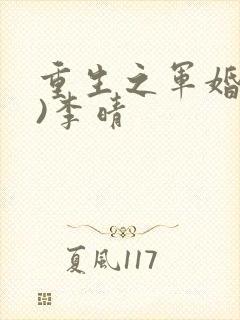 重生之军婚
)李晴
夏風117